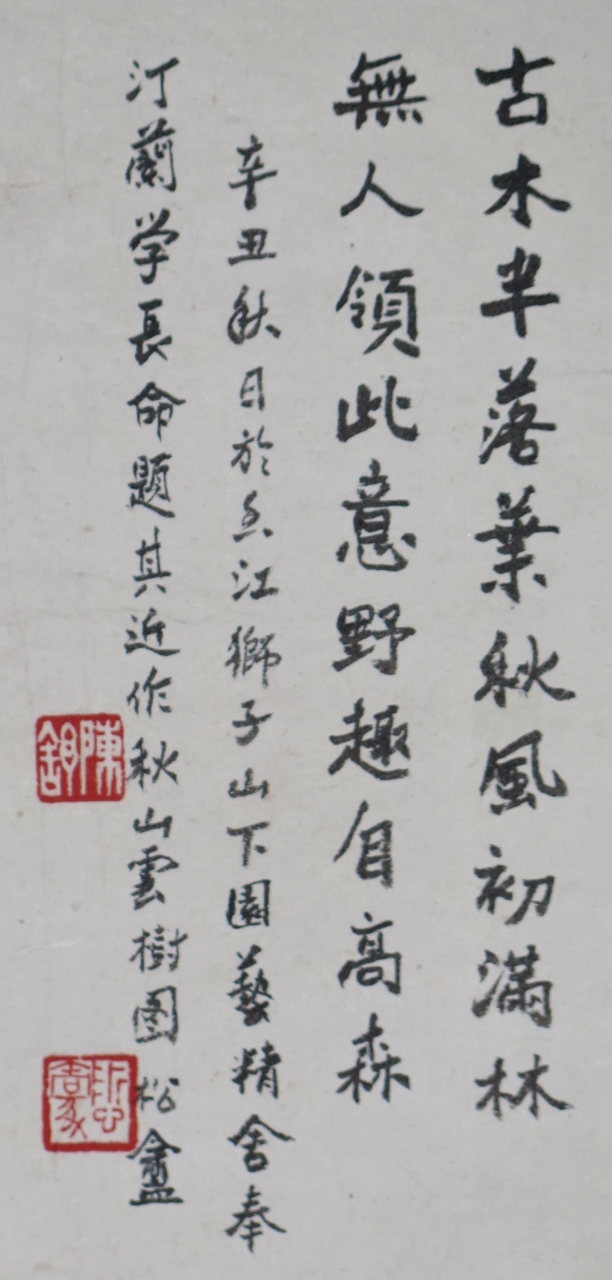 古木半落葉秋風初滿林
無人領此意野趣自高森
辛丑秋日於香江獅子山下園藝精舍奉
汀蘭学長命題其近作秋山雲樹图 松盦
陳